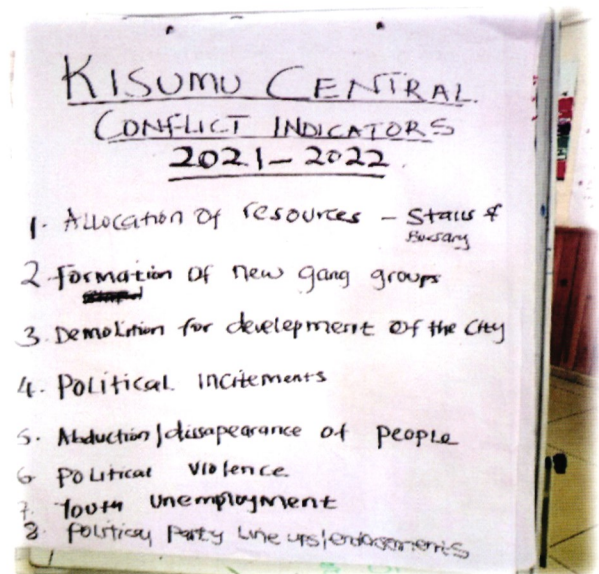 KISUMU CENTRAL
CONFLICT INDICATORS
2021-2022.
1. Allocation of resources - Stalls &
Bursary
2. Formation of new gang groups
3. Demolition for development of the City
4. Political incitements
5. Abduction/dissapearance of people
6 Political violence
7. Youth unemployment
8. Political Party Line ups/endorsements